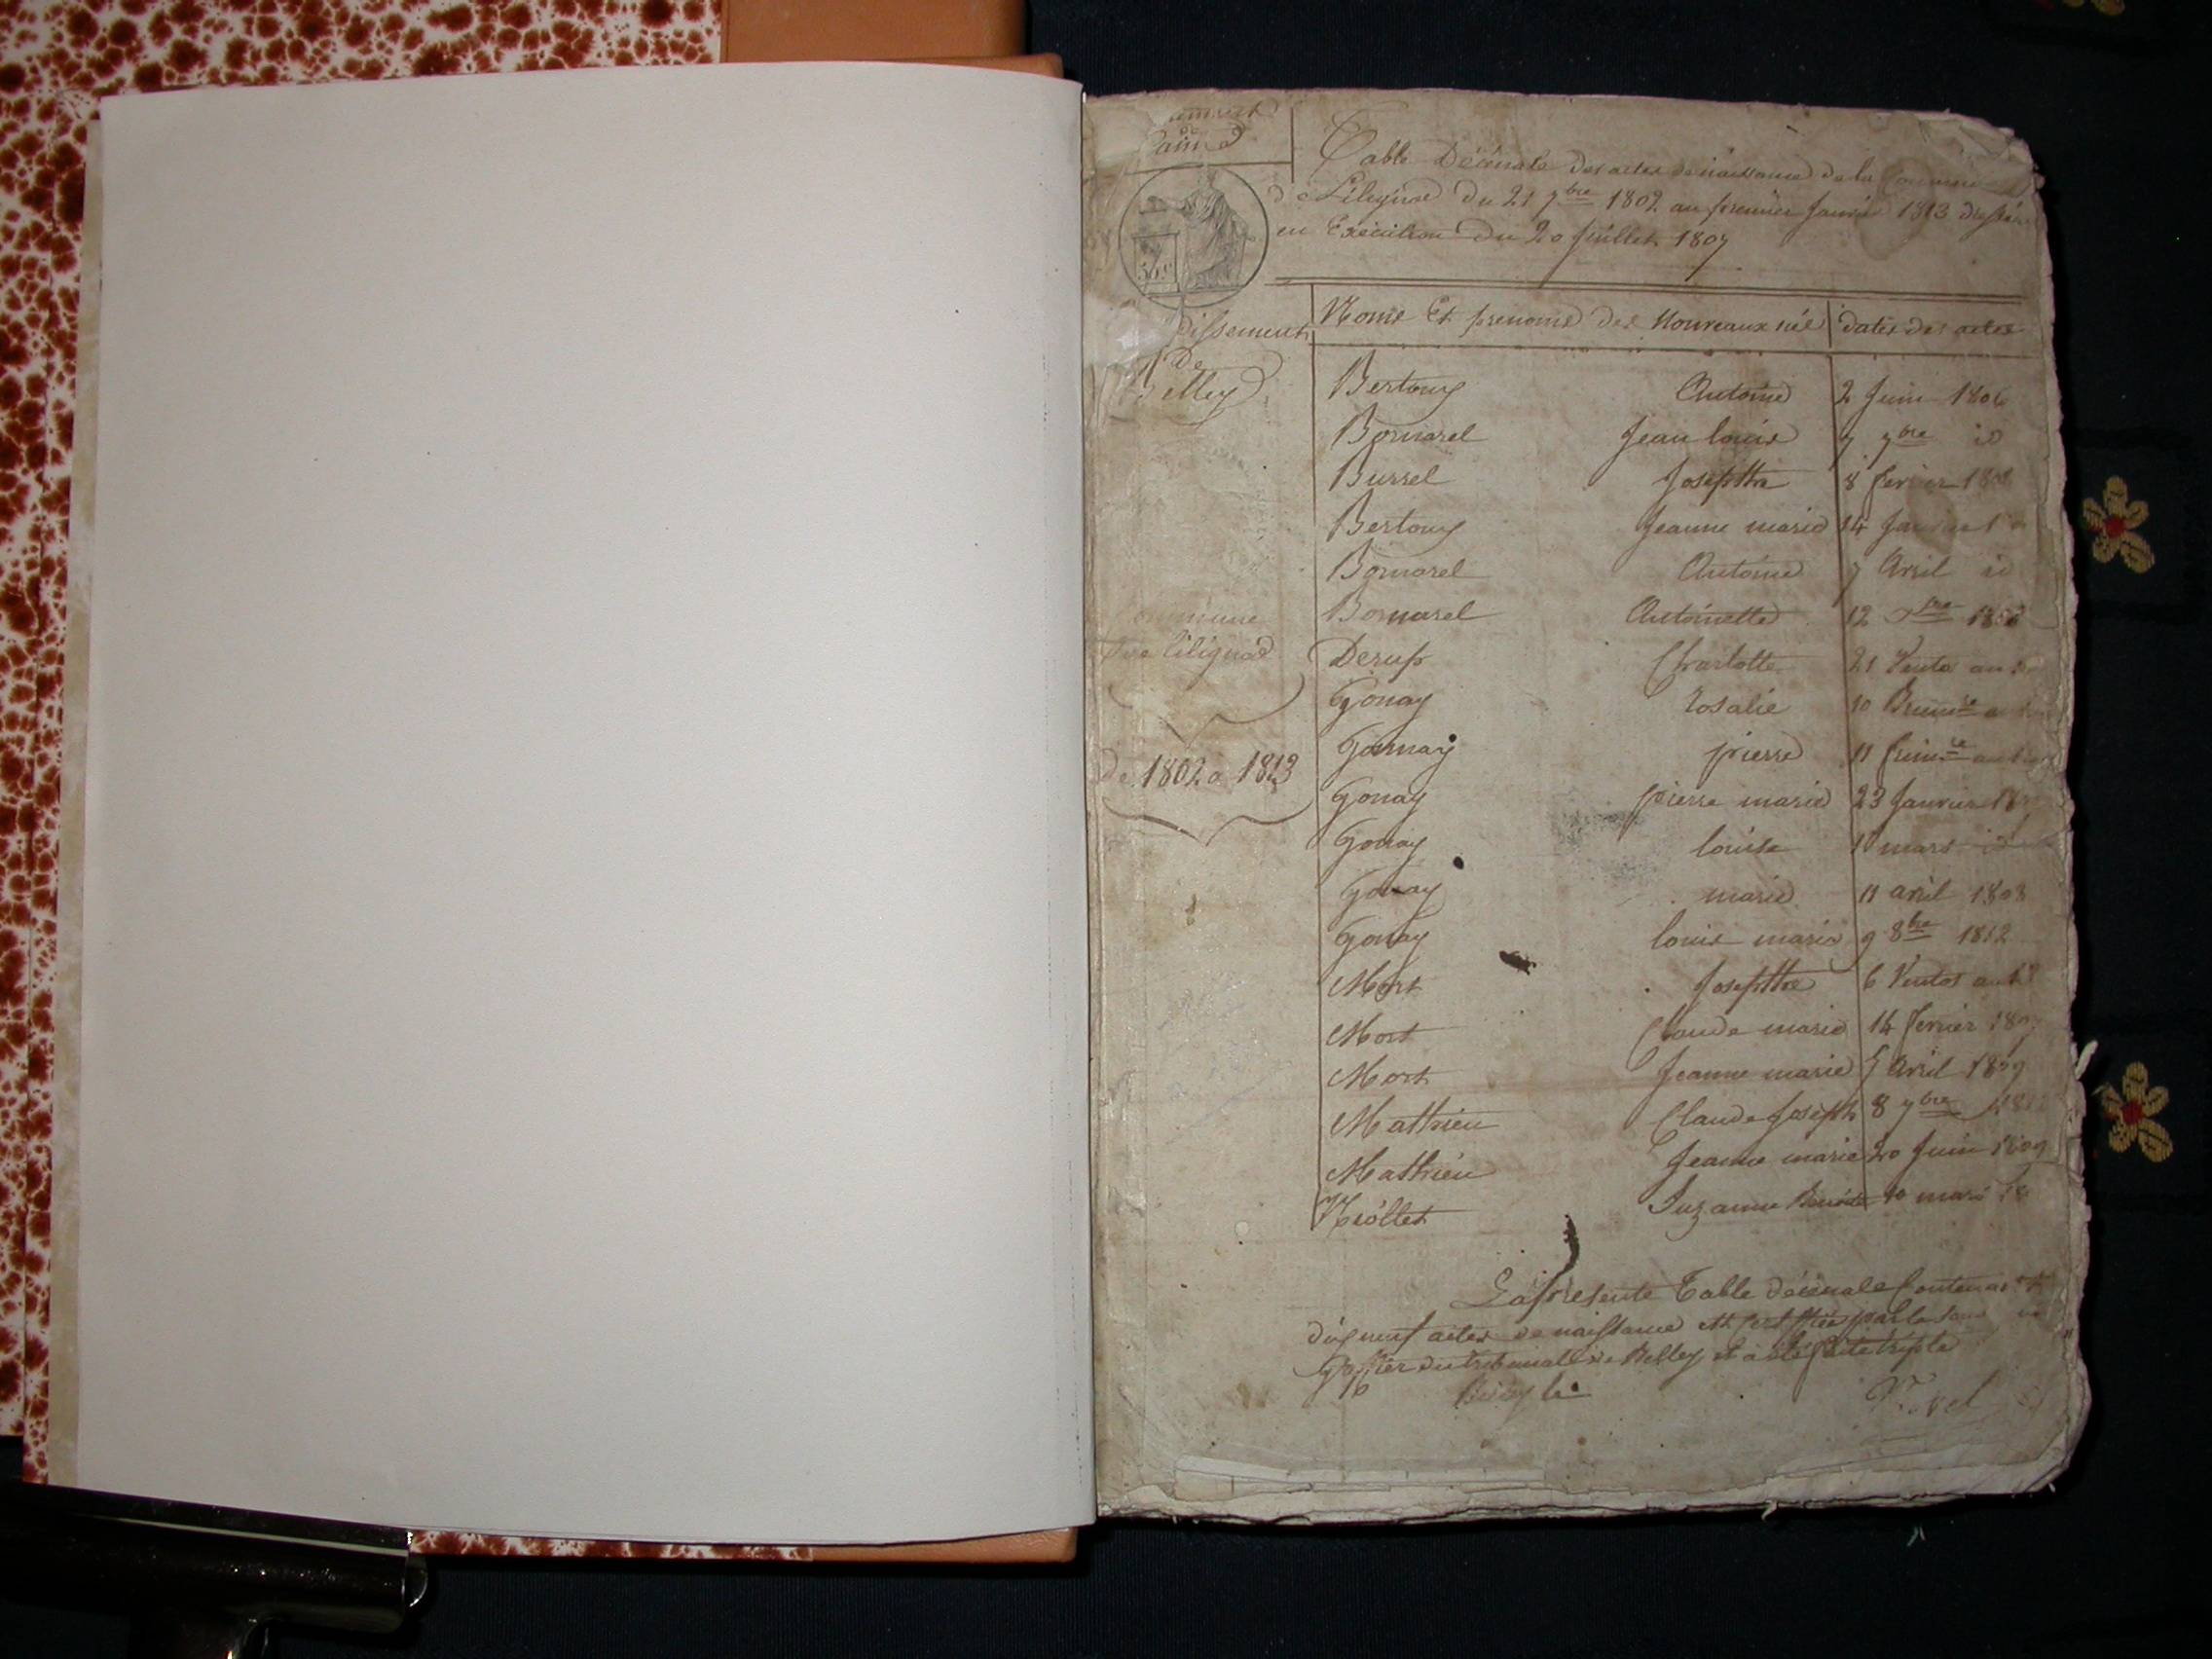 de l'ain
Table Décénale des actes de naissance de la Commune
de Liligna du 21 7bre 1802 au premier Janvier 1813 dressée
en Exécution du 20 Juillet 1807
50 c
Noms Et prenoms des Nouveaux nés dates des actes
dissement
de
Belley
Bertouy Antoine 2 Juin 1806
Bornarel Jean louis 7 7bre id
Burrel Josephte 8 fevrier
Bertouy Jeanne marie 14 Janvier
Bornarel Antoine 7 Avril id
Bornarel Antoinette 12
Commune
de lilignad
Derup Charlotte 21 Vento an
Gonay rosalie 10 Brumre
Gonnay pierre 11 frimre an
de 1802 a 1813
Gonay pierre marie 23 Janvier
Gonay louise mars id
Gonay marie 11 avril 1808
Gonay louis marie 9 8bre 1812
Mort Josephte 6 Ventos an
Mort Claude marie 14 fevrier
Mort Jeanne marie 5 Avril 1809
Mathieu Claude Joseph 8 7bre
Mathieu Jeanne marie 20 Juin 1809
Suzanne 10 mars
La présente Table décénale Contenant
dix neuf actes de naissance
Greffier du tribunal de Belley et a été faite triple